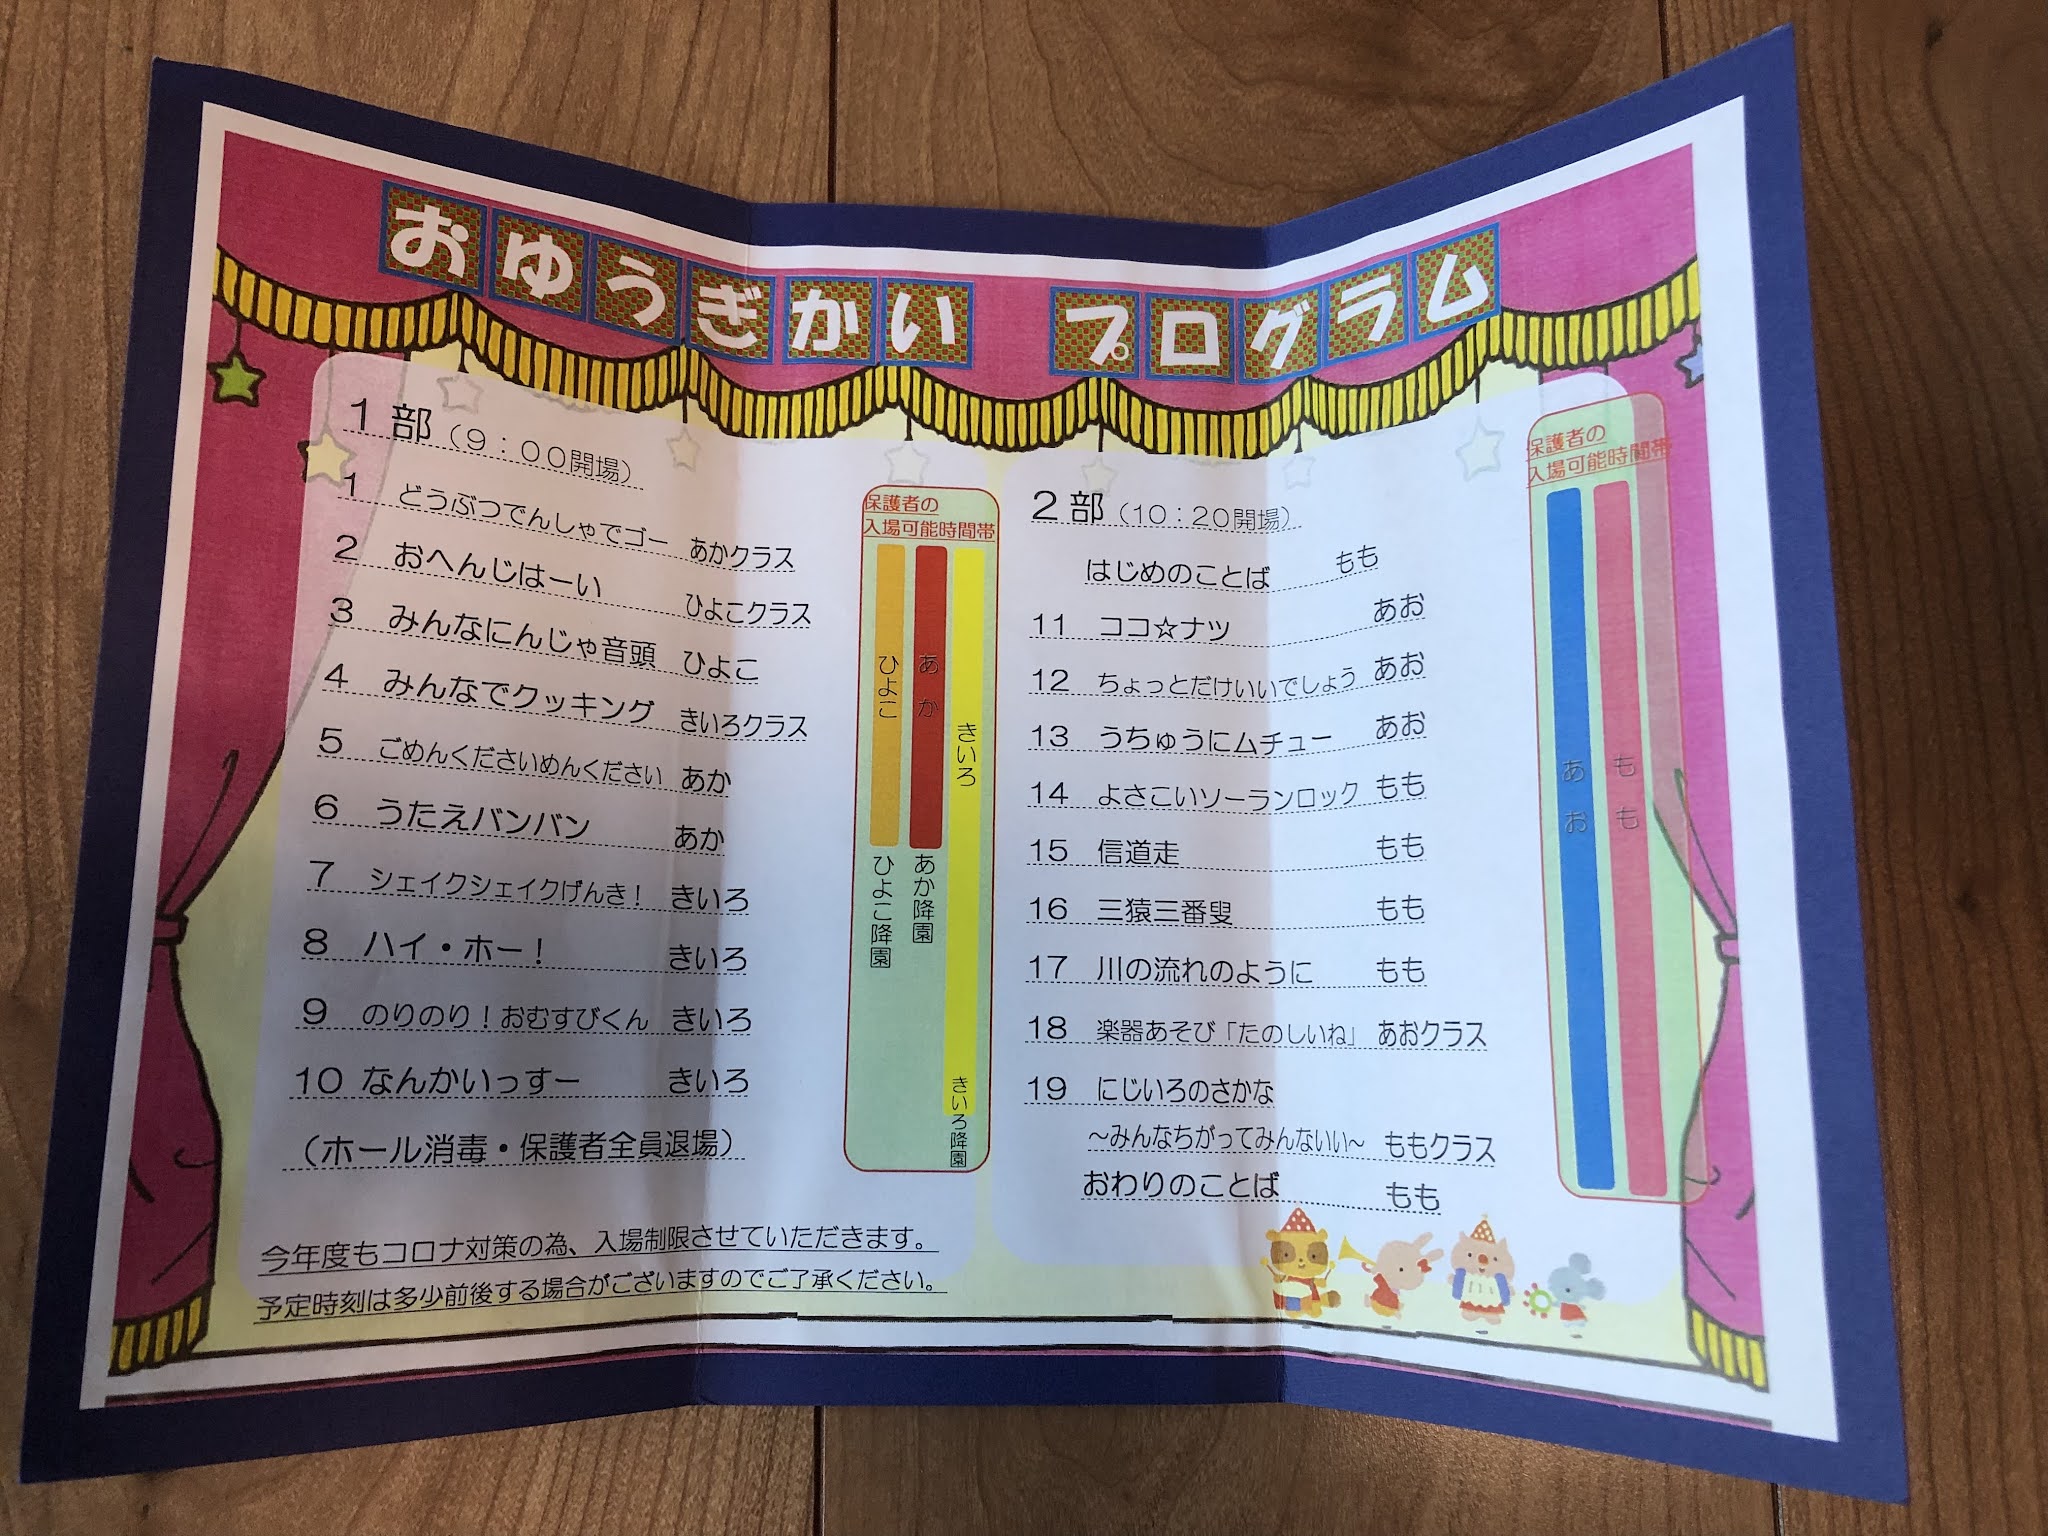 おゆうぎかい プログラム
1部（9：00開場）
1 どうぶつでんしゃでゴー あかクラス
2 おへんじはーい ひよこクラス
3 みんなにんじゃ音頭 ひよこ
4 みんなでクッキング きいろクラス
5 ごめんくださいめんください あか
6 うたえバンバン あか
7 シェイクシェイクげんき！ きいろ
8 ハイ・ホー！ きいろ
9 のりのり！おむすびくん きいろ
10 なんかいっすー きいろ
（ホール消毒・保護者全員退場）
今年度もコロナ対策の為、入場制限させていただきます。
予定時刻は多少前後する場合がございますのでご了承ください。
保護者の
入場可能時間帯
ひよこ
あか
きいろ
ひよこ降園
あか降園
きいろ降園
2部（10：20開場）
はじめのことば もも
11 ココ☆ナツ あお
12 ちょっとだけいいでしょう あお
13 うちゅうにムチュー あお
14 よさこいソーランロック もも
15 信道走 もも
16 三猿三番叟 もも
17 川の流れのように もも
18 楽器あそび「たのしいね」 あおクラス
19 にじいろのさかな
～みんなちがってみんないい～ ももクラス
おわりのことば もも
保護者の
入場可能時間帯
あお
もも